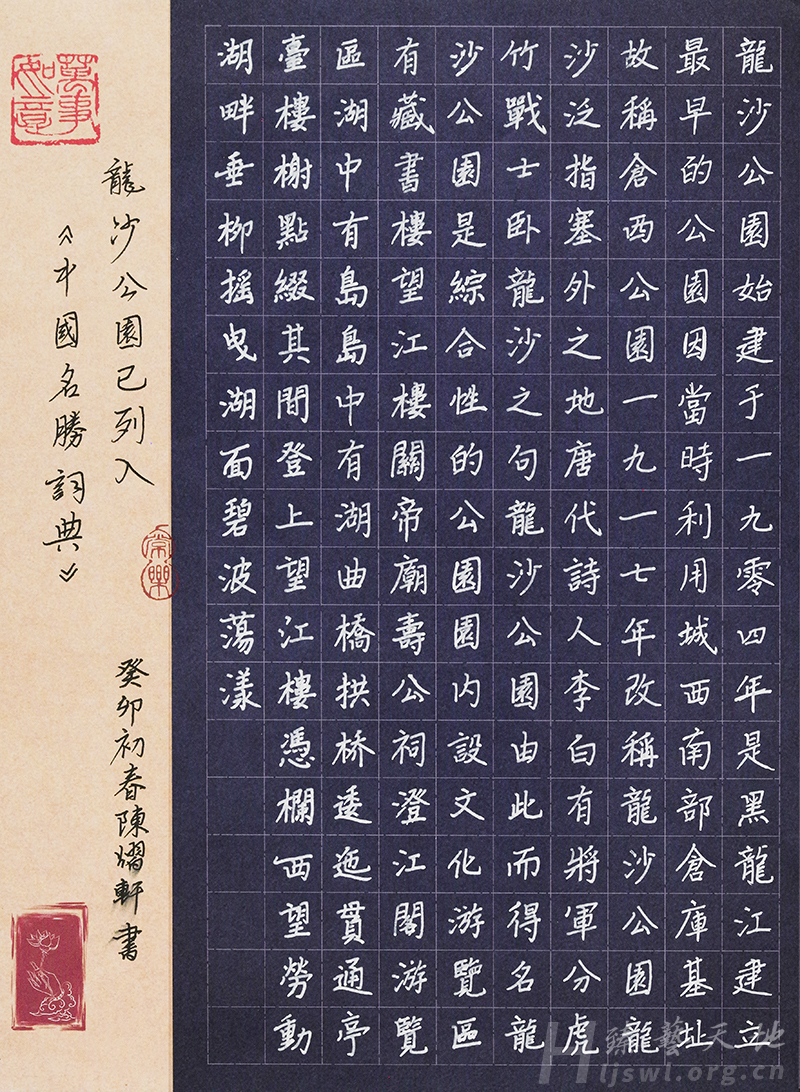 龍沙公園始建于一九零四年是黑龍江建立
最早的公園因當時利用城西南部倉庫基址
故稱倉西公園一九一七年改稱龍沙公園龍
沙泛指塞外之地唐代詩人李白有將軍分虎
竹戰士卧龍沙之句龍沙公園由此而得名龍
沙公園是綜合性的公園園內設文化游覽區
有藏書樓望江樓關帝廟壽公祠澄江閣游覽
區湖中有島島中有湖曲橋拱桥逶迤貫通亭
臺樓榭點綴其間登上望江樓憑欄西望勞動
湖畔垂柳摇曳湖面碧波蕩漾
龍沙公園已列入
《中國名勝詞典》
癸卯初春陳熠軒書
萬事如意
常樂
臻藝天地
Hljswl.org.cn